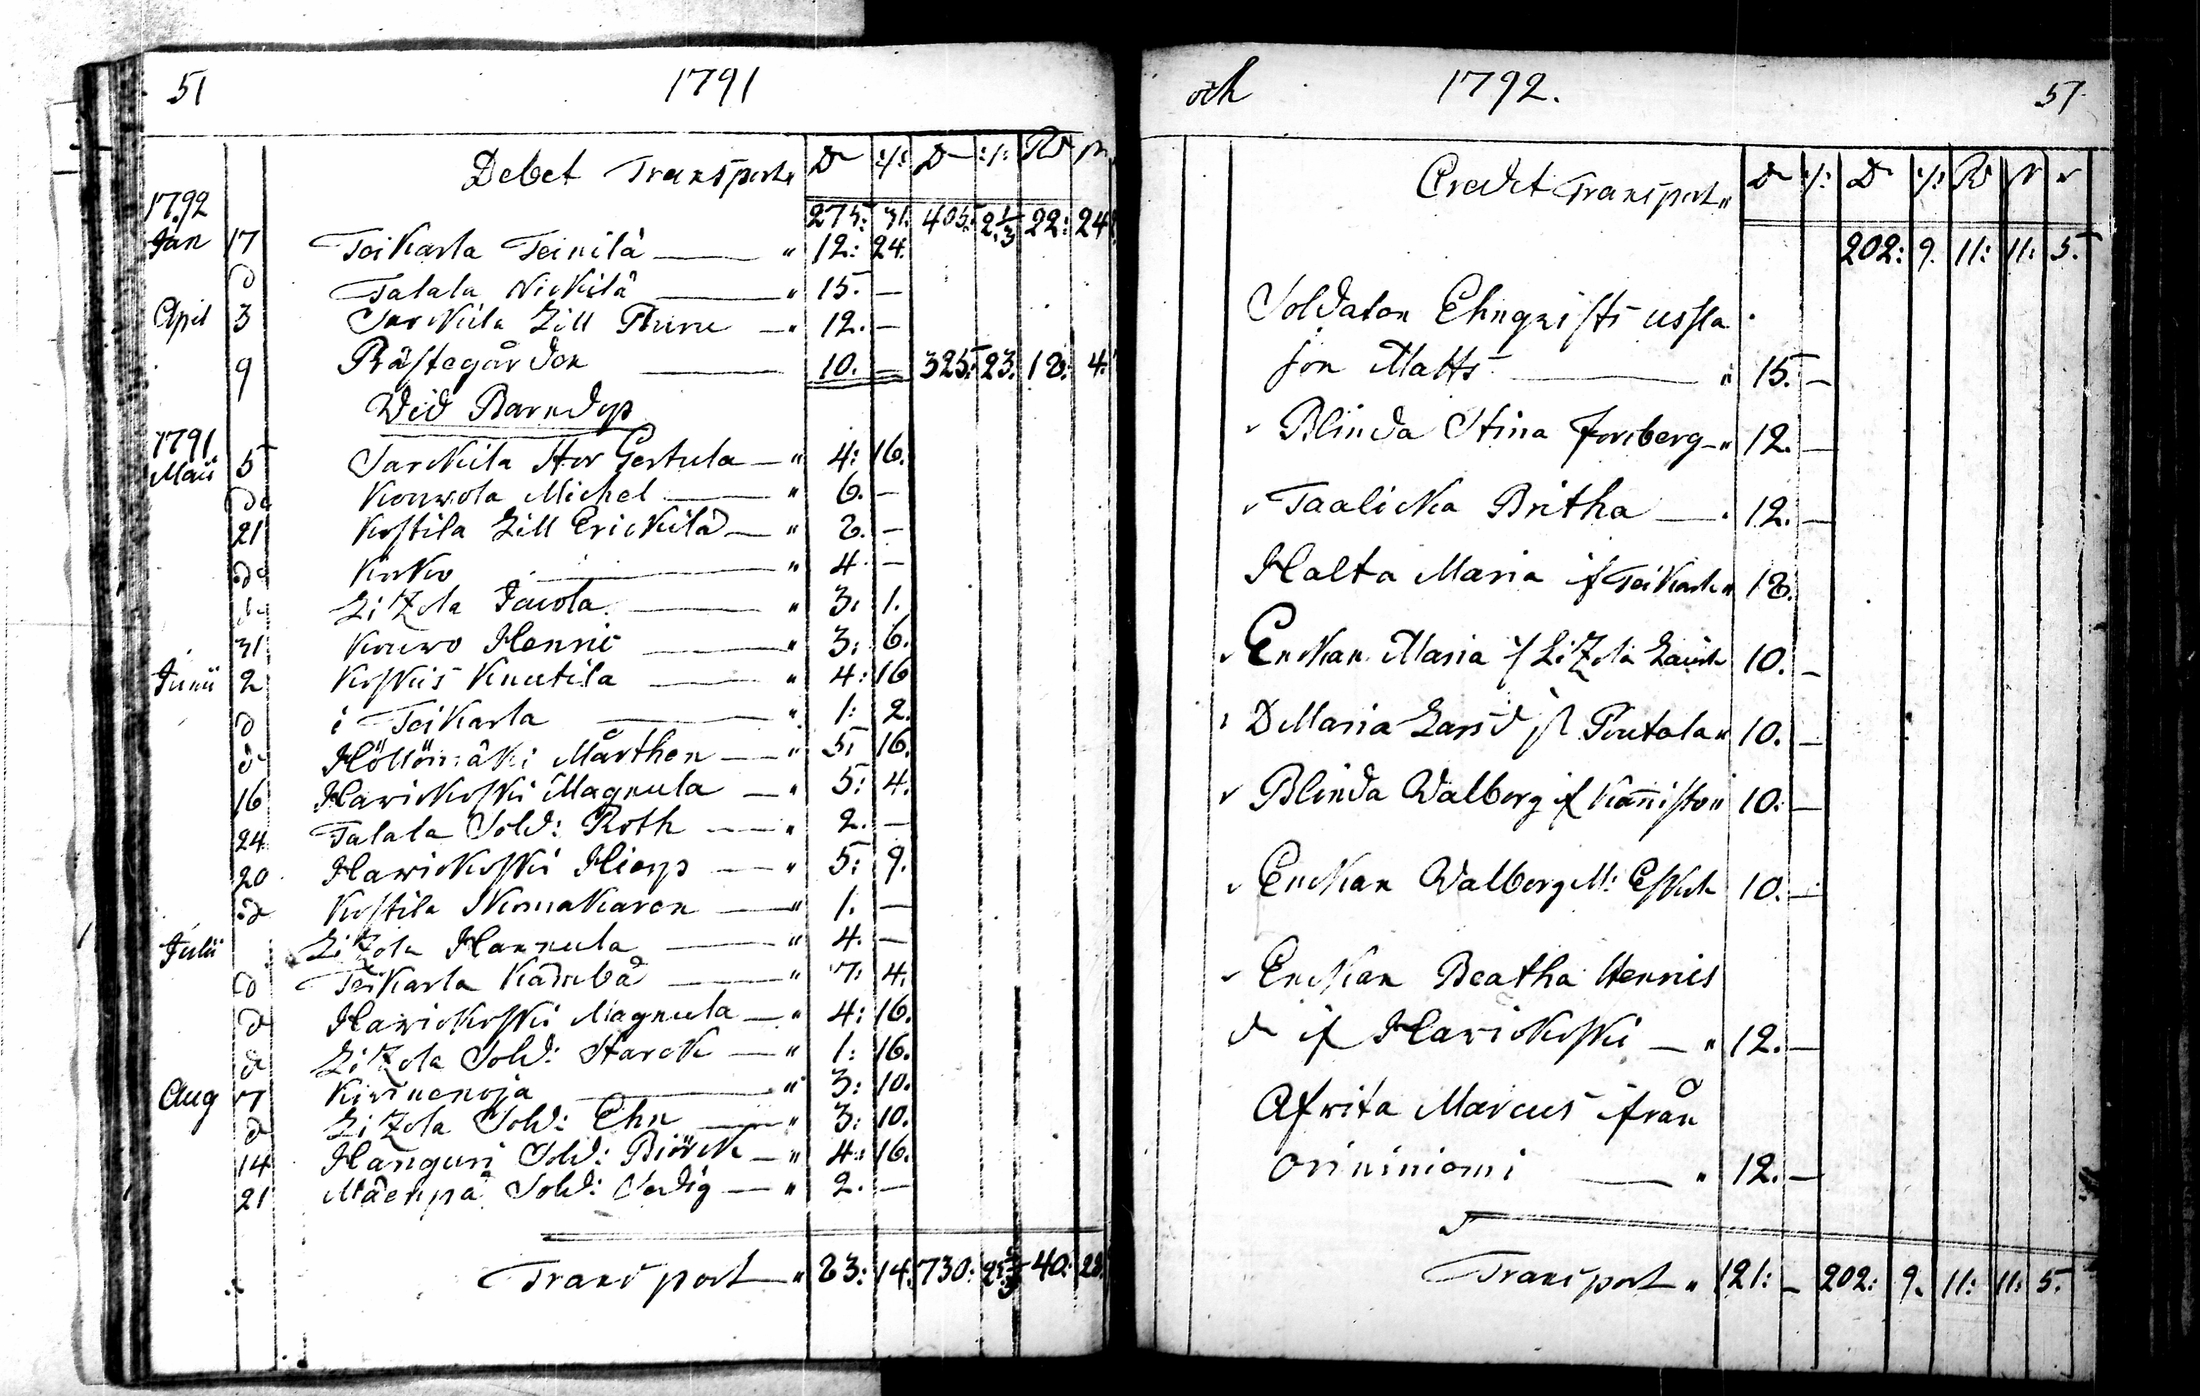 51 1791
Debet Transport " D :/: D :/: Rd
275: 31. 405: 2 1/3 22: 24
1792
Jan 17 Teikarla Teinilä — " 12: 24.
d Talala Nickilä — " 15. —
April 3 Sarckila Lill Thuru — " 12. —
9 Prästegården — 10. — 325: 23. 18: 4:
Wid Barndop
1791
Maii 5 Sarckila Stor Gertula — " 4: 16.
do Kouwola Michel — " 6. —
21 Kostila Lill Erickilä — " 8. —
do Kicko — " 4. —
d: Litzola Jacola — " 3. 1.
31 Kouwo Henric — " 3: 6.
Junii 2 Koskis Knutila — " 4: 16
d i Teikarla — " 1: 2.
d Höllömäki Mårthen — " 5: 16.
16 Hawiokoski Magnula — " 5: 4.
24 Talala Sold: Roth — " 2. —
20 Hawiokoski Hierp — " 5: 9.
d Kostila Skomakaren — " 1. —
Julii Litzola Hannula — " 4. —
d Teikarla — " 7: 4.
d Hawiokoski Magnula — " 4: 16.
d Litzola Sold: Starck — " 1: 16.
Aug 7 Kirnunoja — " 3: 10.
d Litzola Sold: Ehn — " 3: 10.
14 Hanguri Sold: Biörck — " 4: 16.
21 Mäenpä Sold: — " 2. —
Transport " 83: 14. 730: 40: 28.
och 1792. 51
Credit Transport " D :/: D :/: Rd
202: 9. 11: 11: 5.
Soldaten Ehnqvists ussla
son Matts — " 15. —
Blinda Stina Forsberg — " 12. —
Taalicka Britha — 12. —
Halta Maria if Teikarla " 18.
Enckan Maria if Litzola 10. —
D Maria Larsd if Poutala " 10. —
Blinda Walborg if Känisto " 10. —
Enckan Walborg M: 10. —
Enckan Beatha Henrics
dr if Hawiokoski — " 12. —
Afwita Marcus ifrån
Orininiemi — " 12. —
Transport " 121: — 202: 9. 11: 11: 5.